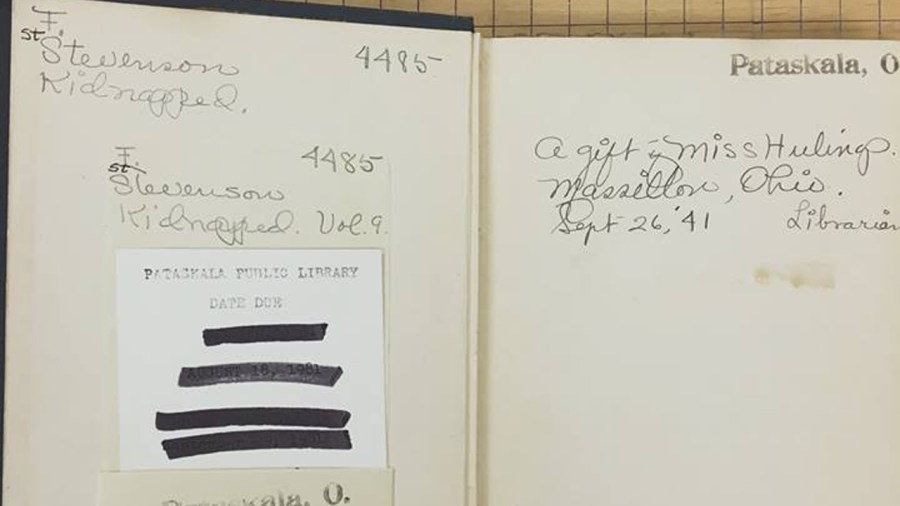 F.
st
Stevenson 4485
Kidnapped.
F.
st. 4485
Stevenson
Kidnapped. Vol. 9.
PATASKALA PUBLIC LIBRARY
DATE DUE
AUGUST 18, 1981
Pataskala, O.
Pataskala, O
A gift of Miss Hulings.
Massillon, Ohio.
Sept 26, '41 Librarian